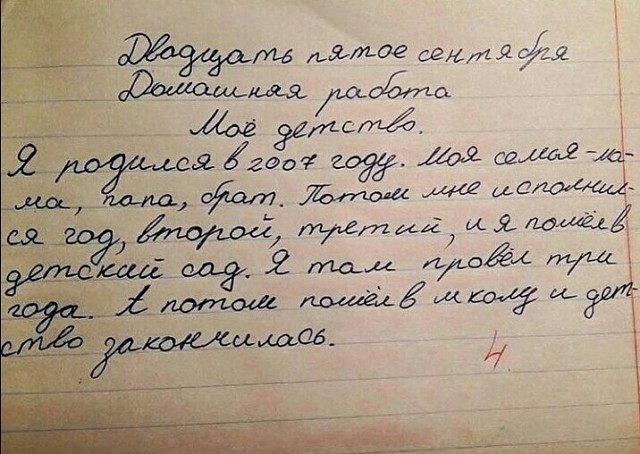 Двадцать пятое сентября
Домашняя работа
Моё детство.
Я родился в 2007 году. Моя семья-ма-
ма, папа, брат. Потом мне исполнил-
ся год, второй, третий, и я пошёл в
детский сад. Я там провёл три
года. А потом пошёл в школу и дет-
ство закончилась.
4